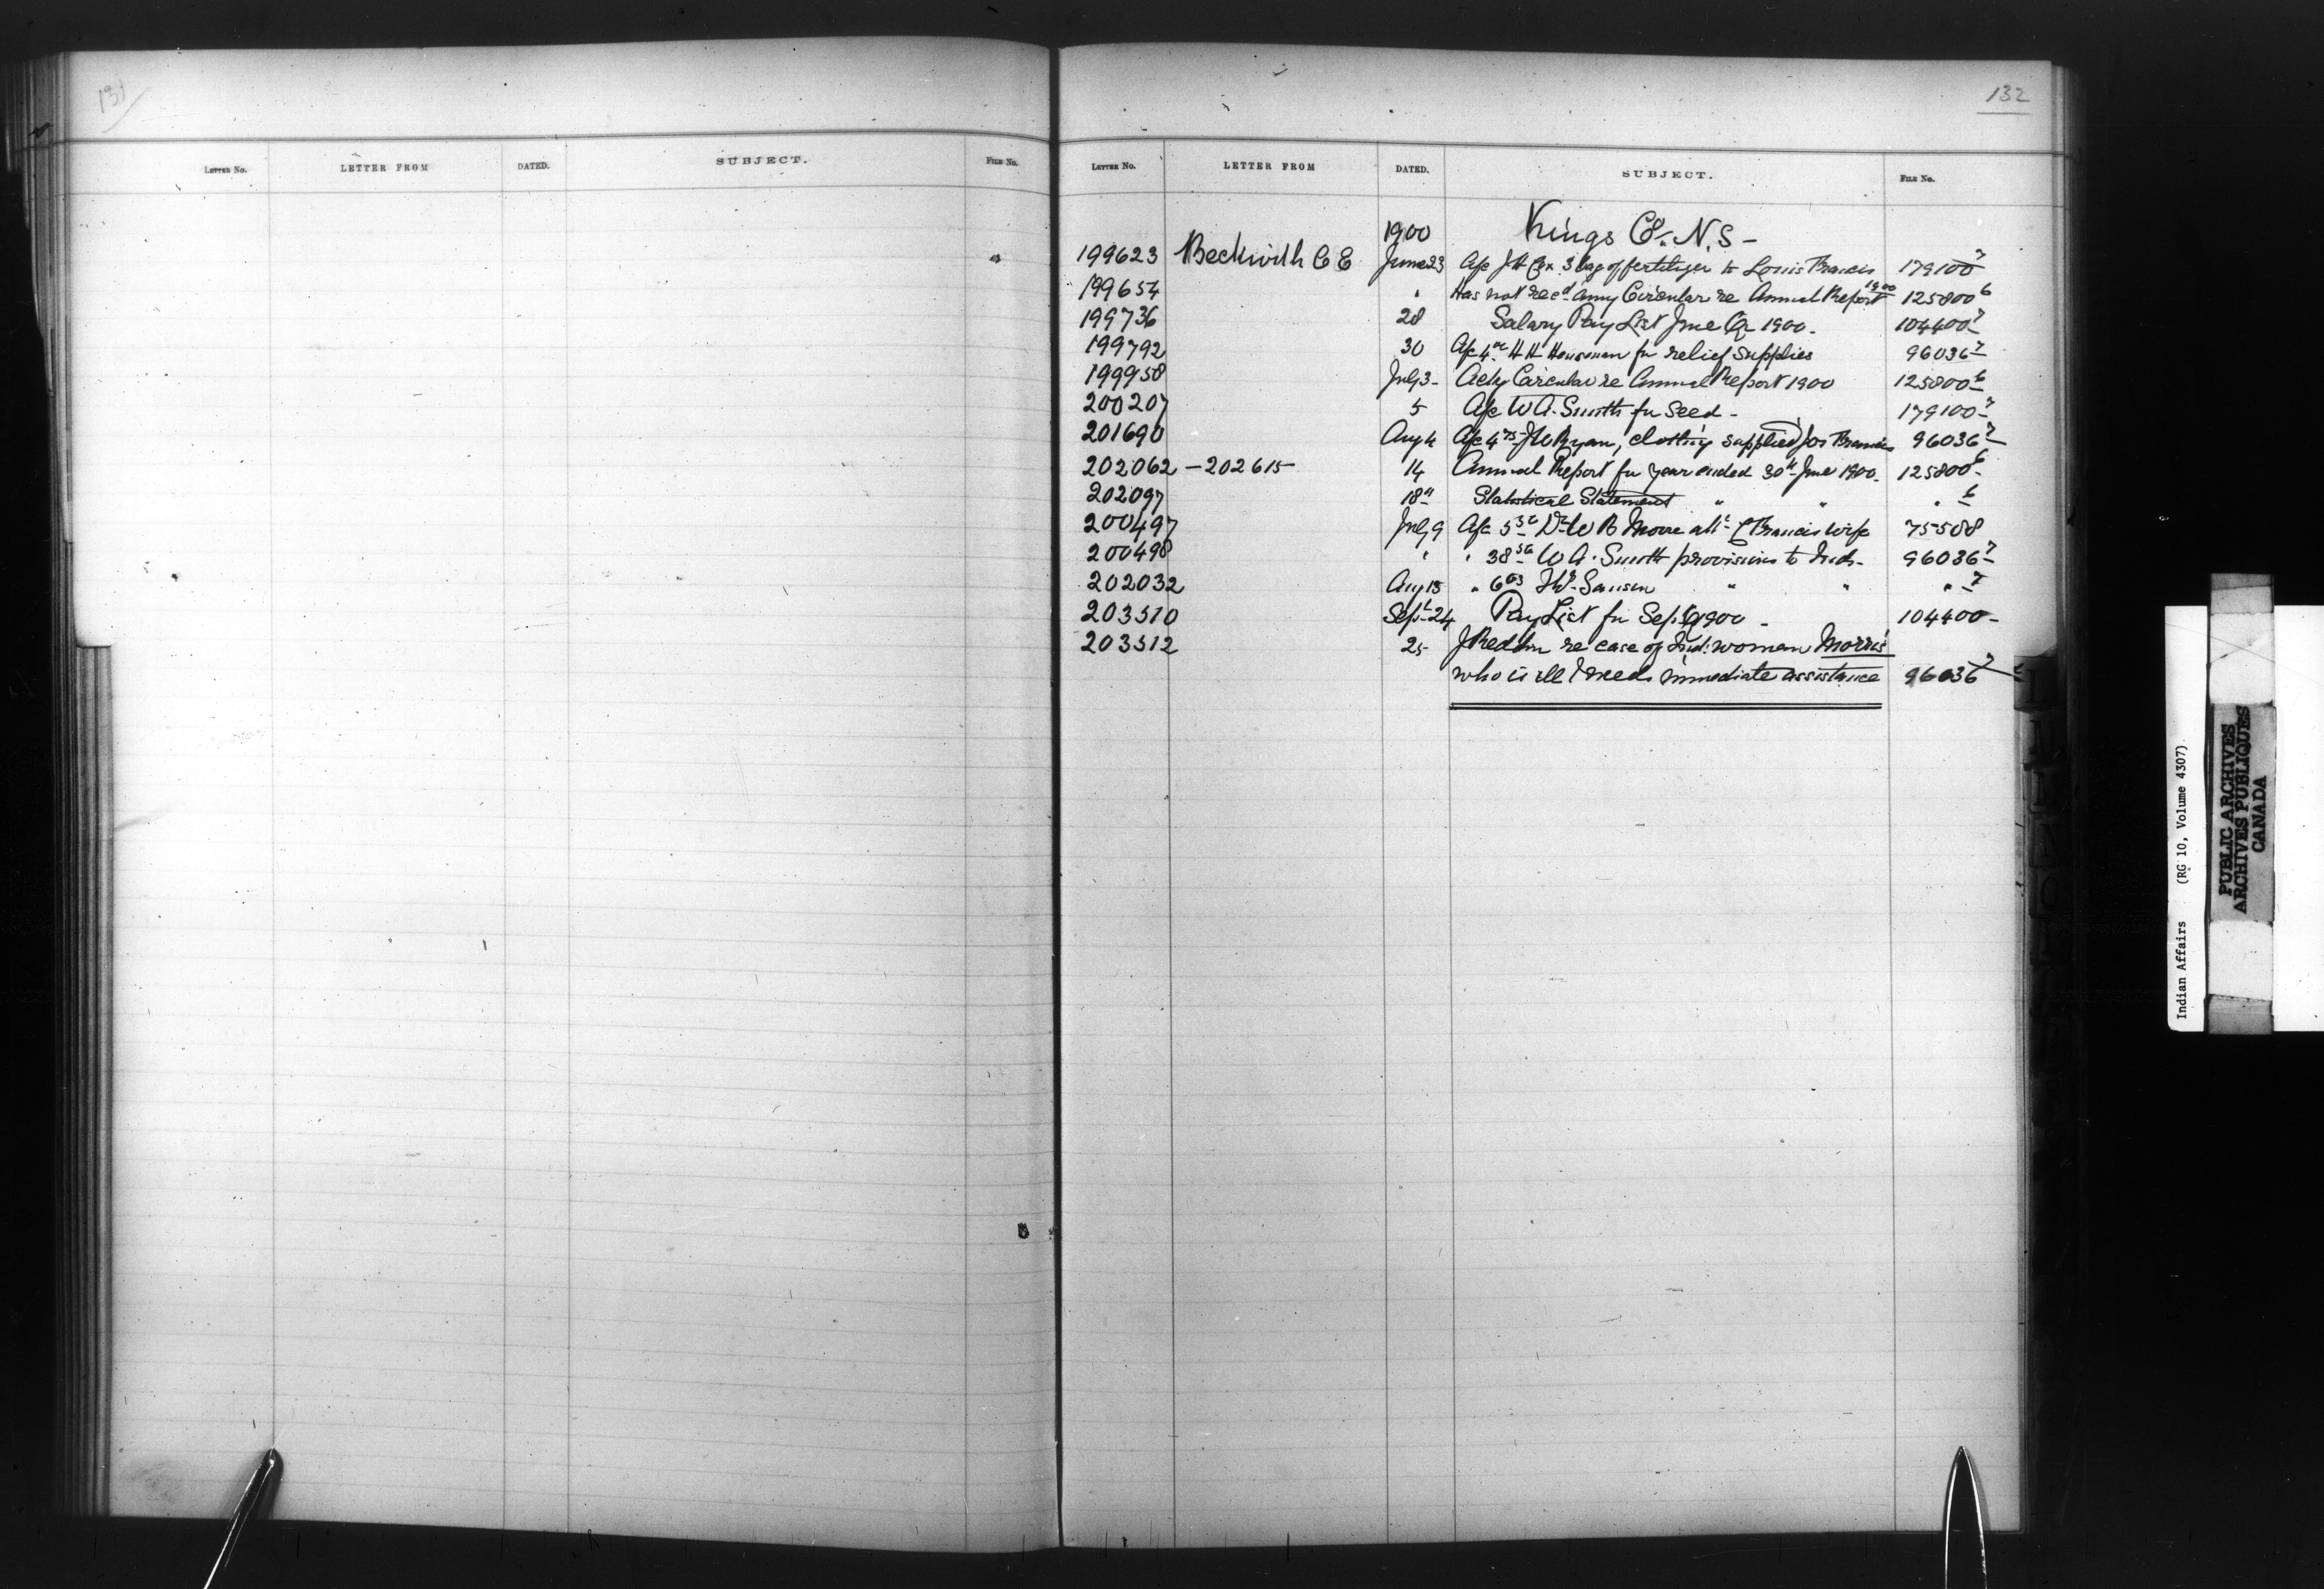 131
LETTER NO. LETTER FROM DATED. SUBJECT. FILE NO.
132
LETTER NO. LETTER FROM DATED. SUBJECT. FILE NO.
1900 Kings Co. N.S -
199623 Beckwith C E June 23 A/c J H Cox 3 bag of fertilizer to Louis Francis 179100 7
199654 " Has not recd any Circular re Annual Report 1900 125800 6
199736 28 Salary Pay List June Qr 1900. 104400 7
199792 30 A/c H H for relief supplies 96036 7
199958 July 3 - Ackg Circular re Annual Report 1900 125800 6
200207 5 A/c W A. Smith for Seed - 179100 7
201690 Aug 4 A/c J W Ryan, clothing supplied Jos Francis 96036 7
202062 - 202615 14 Annual Report for year ended 30th June 1900. 125800 6
202097 18 " Statistical Statement " " " 6
200497 July 9 A/c Dr W B Moore Francis wife 75508
200498 " " W A. Smith provisions to Inds - 96036 7
202032 Aug 15 " " " " 7
203510 Sept 24 Pay List for Sep 1900 - 104400 -
203512 25 re case of Ind: woman Morris
who is ill & needs immediate assistance 96036 7
Indian Affairs (RG 10, Volume 4307)
PUBLIC ARCHIVES
ARCHIVES PUBLIQUES
CANADA